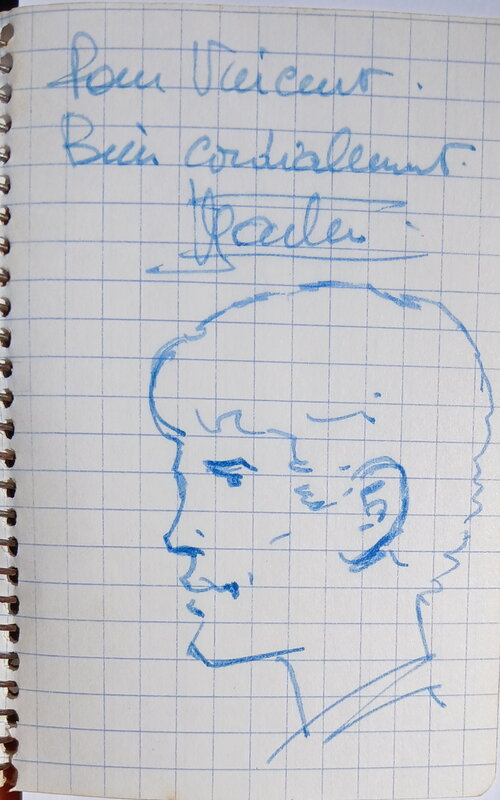 Pour Vincent.
Bien cordialement.